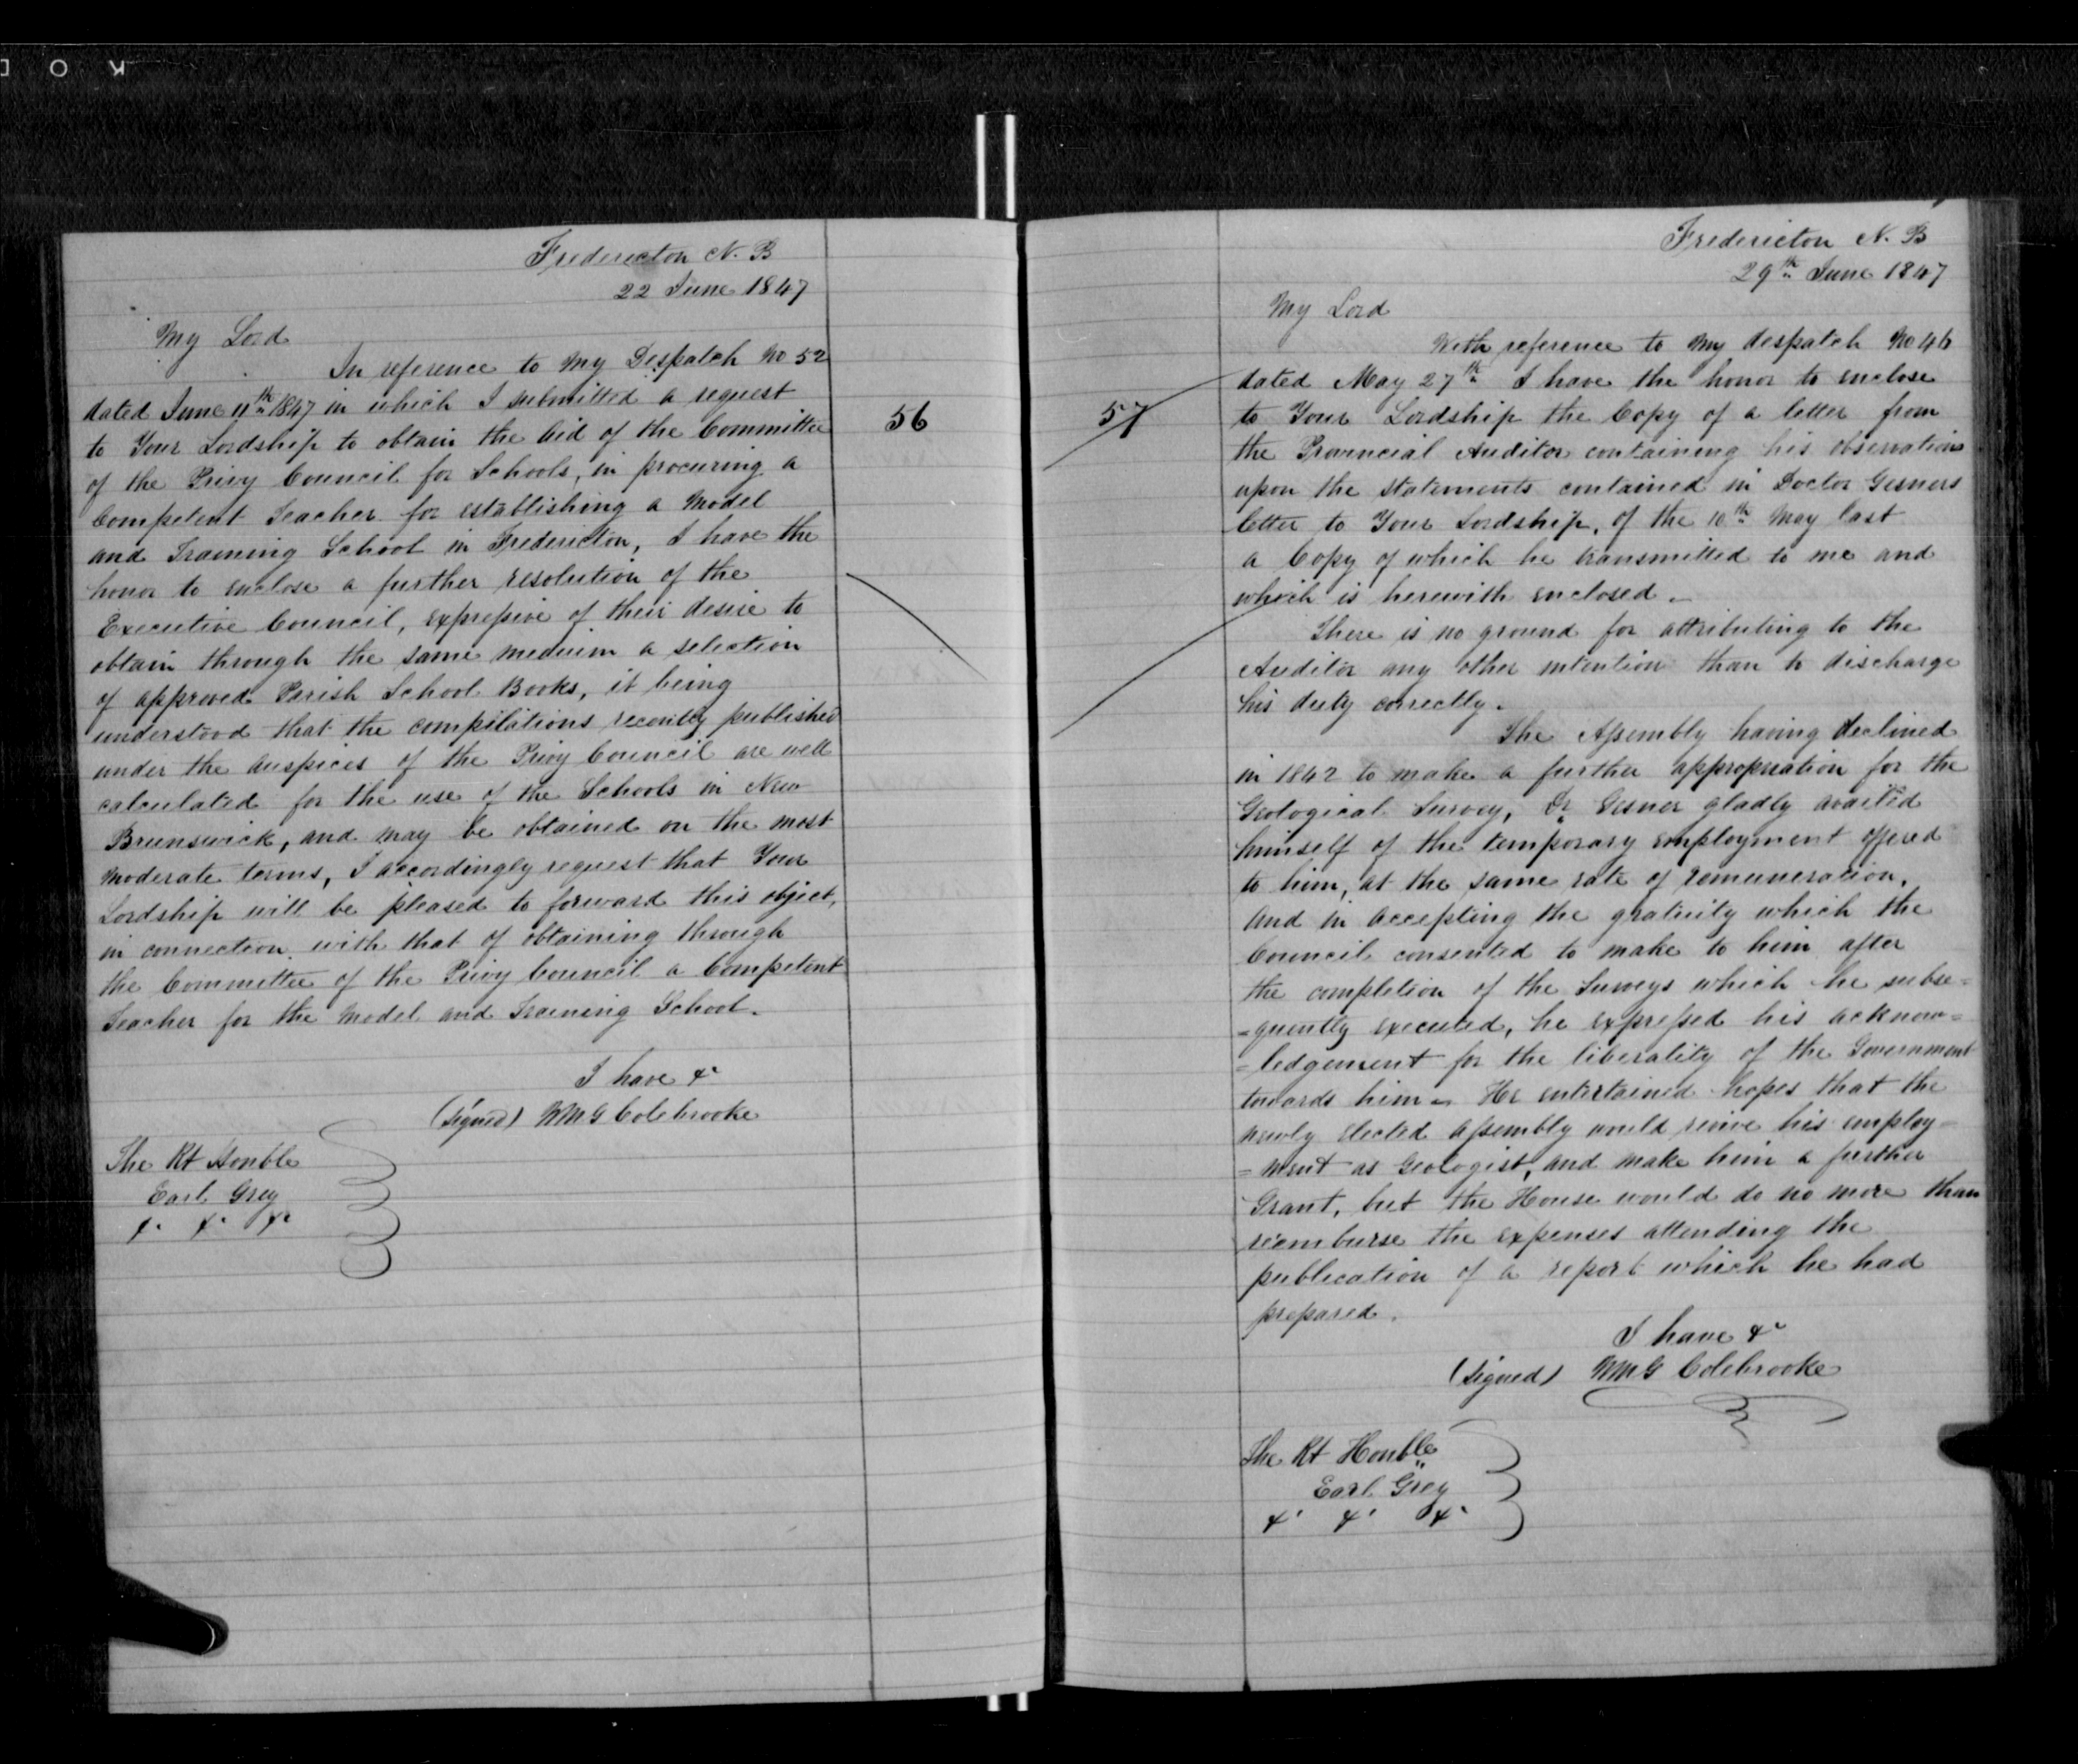 Fredericton N. B
22 June 1847
My Lord
In reference to my Despatch No 52
dated June 11th 1847 in which I submitted a request
to Your Lordship to obtain the aid of the Committee
of the Privy Council for Schools, in procuring a
Competent Teacher for establishing a Model
and Training School in Fredericton, I have the
honor to enclose a further resolution of the
Executive Council, expressive of their desire to
obtain through the same medium a selection
of approved Parish School Books, it being
understood that the compilations recently published
under the auspices of the Privy Council are well
calculated for the use of the Schools in New
Brunswick, and may be obtained on the most
moderate terms, I accordingly request that Your
Lordship will be pleased to forward this object,
in connection with that of obtaining through
the Committee of the Privy Council a Competent
Teacher for the Model and Training School.
I have &c
(signed) WMG Colebrooke
The Rt Honble
Earl Grey
&c &c &c
56
57
Fredericton N. B
29th June 1847
My Lord
With reference to my despatch No 46
dated May 27th I have the honor to enclose
to Your Lordship the Copy of a letter from
the Provincial Auditor containing his observations
upon the statements contained in Doctor Gesners
letter to Your Lordship, of the 10th May last
a Copy of which he transmitted to me and
which is herewith enclosed.
There is no ground for attributing to the
Auditor any other intention than to discharge
his duty correctly.
The Assembly having declined
in 1842 to make a further appropriation for the
Geological Survey, Dr Gesner gladly availed
himself of the temporary employment offered
to him, at the same rate of remuneration,
and in accepting the gratuity which the
Council consented to make to him after
the completion of the Surveys which he subse=
=quently executed, he expressed his acknow=
=ledgement for the liberality of the Government
towards him. He entertained hopes that the
newly elected Assembly would revive his employ=
=ment as Geologist, and make him a further
Grant, but the House would do no more than
reemburse the expenses attending the
publication of a report which he had
prepared.
I have &c
(Signed) WMG Colebrooke
The Rt Honble
Earl Grey
&c &c &c